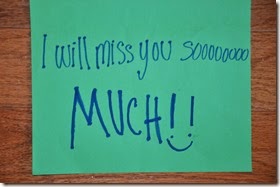 I will miss you sooooooooo
MUCH!!